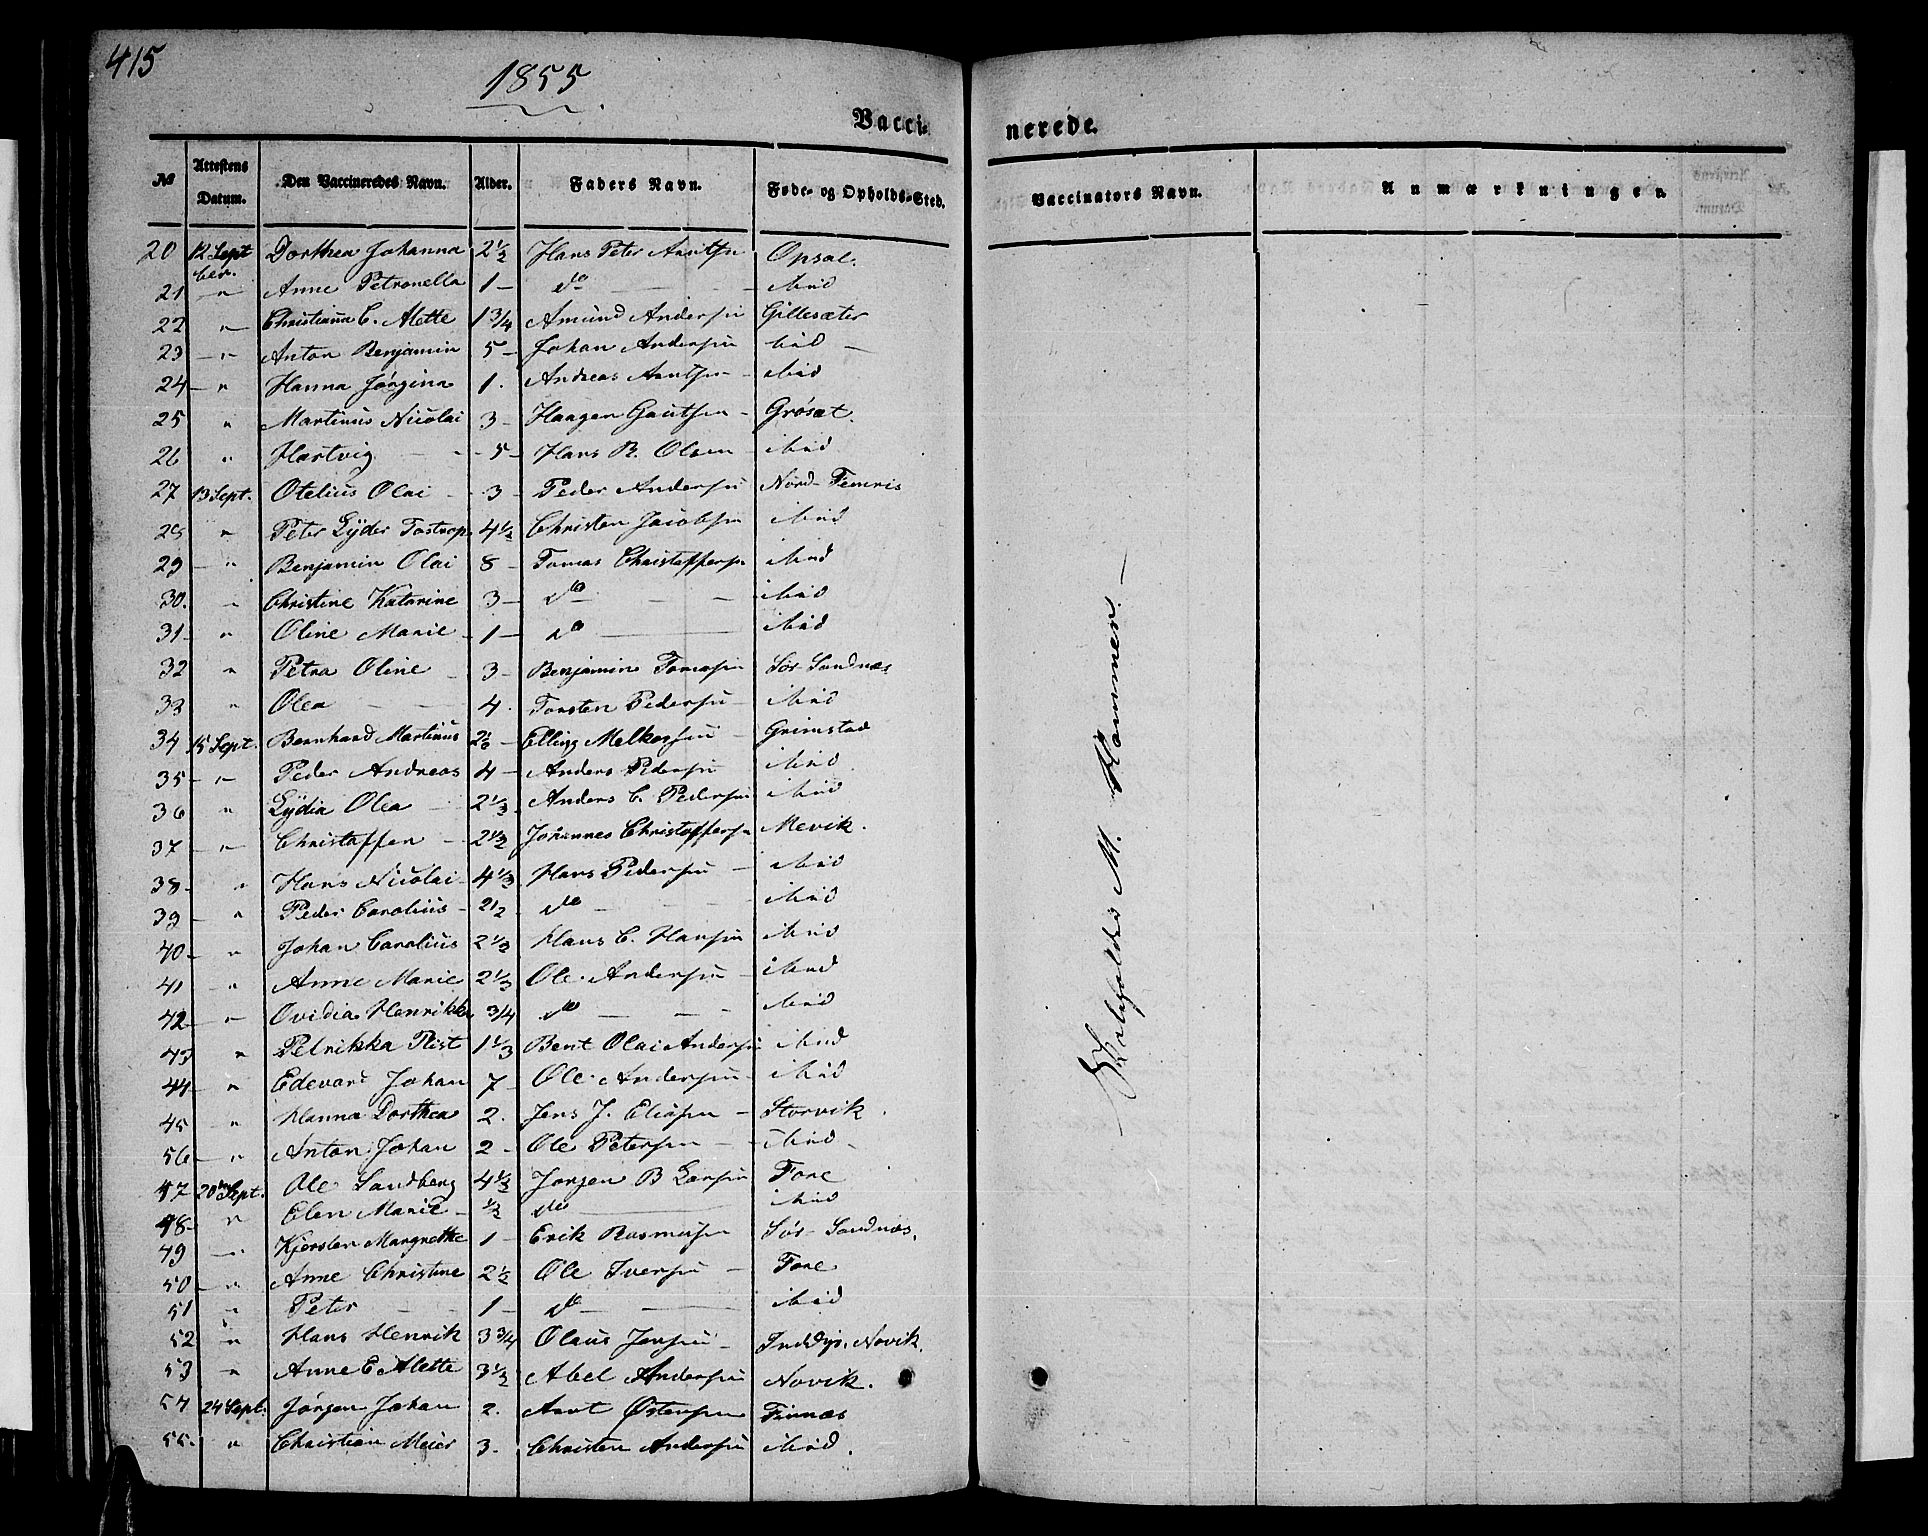 415
1855
Vacci- nerede.
No Attestens Datum. Den Vaccineredes Navn. Alder. Faders Navn. Føde- og Opholds-Sted. Vaccinators Navn. Anmærkningen
20 12 Sept ber. Dorthea Johanna 2½ Hans Peter Arntsn Opsal.
21 — " Anne Petronella 1 — do — Ibid
22 " Christiana C. Alette 1 3/4 Amund Andersen Gillesæter
23 — " Anton Benjamin 5 — Johan Andersen Ibid —
24 — " Hanna Jørgine 1. Andreas Arntsn — Ibid
25 " Martinus Nicolai 3 — Haagen Gautsen — Grøsæt.
26 " Hartvig — 5 — Hans R. Olsen — Ibid
27 13 Sept. Otelius Olai — 3 — Peder Andersen Nord-Femris
28 " Peter Lyder Tostrup 4½ Christen Jacobsen Ibid
29 — " Benjamin Olai 8 — Tomas Christoffersn Ibid
30. " Christine Katarine 3 — do — Ibid
31 — " Oline Marie — 1 — do — Ibid
32 " Petra Oline — 3 — Benjamin Tomasen Sør-Sandnæs
33 " Olea — 4. Torsten Pedersen — Ibid
34 15 Sept. Bernhard Martinus — Elling Melkersen — Grimstad
35 — " Peder Andreas 4 — Anders Pedersen Ibid
36 " Lydia Olea — 2⅓ Anders C. Pedersen Ibid
37 — " Christoffer — 2½ Johannes Christoffersn Mevik.
38 — " Hans Nicolai — 4⅓ Hans Pedersen — Ibid
39 — " Peder Carolius — 2½ do — Ibid
40 — " Johan Carolius 2⅓ Hans C. Hansen Ibid
41 — " Anne Marie 2⅓ Ole Andersen — Ibid
42 — " Ovidia Henrikke 3/4 do — Ibid
43 " Petrikka Rist 1⅓ Bent Olai Andersen Ibid
44 — " Edevard Johan 7 — Ole Andersen — Ibid
45 " Hanna Dorthea 2. Jens J. Eliasen — Storvik.
56 — " Anton Johan 2 — Ole Petersen — Ibid —
47 20 Sept. Ole Sandberg 4½ Jørgen B Larsen Fore
48 — " Elen Marie — ½ do — Ibid
49 — " Kjersten Margrethe 1 — Erik Rasmusen Sør-Sandnæs.
50 — " Anne Christine 2½ Ole Iversen — Fore
51 " Peter — 1 — do — Ibid
52 " Hans Henrik 3 3/4 Olaus Jensen — Inddyr. Novik.
53 " Anne E Alette 3½ Abel Andersen Novik.
54 24 Sept. Jørgen Johan 2. Arnt Østensen Finnæs
55. " Christian Meier 3. Christen Andersen Ibid.
M. Hammer. —